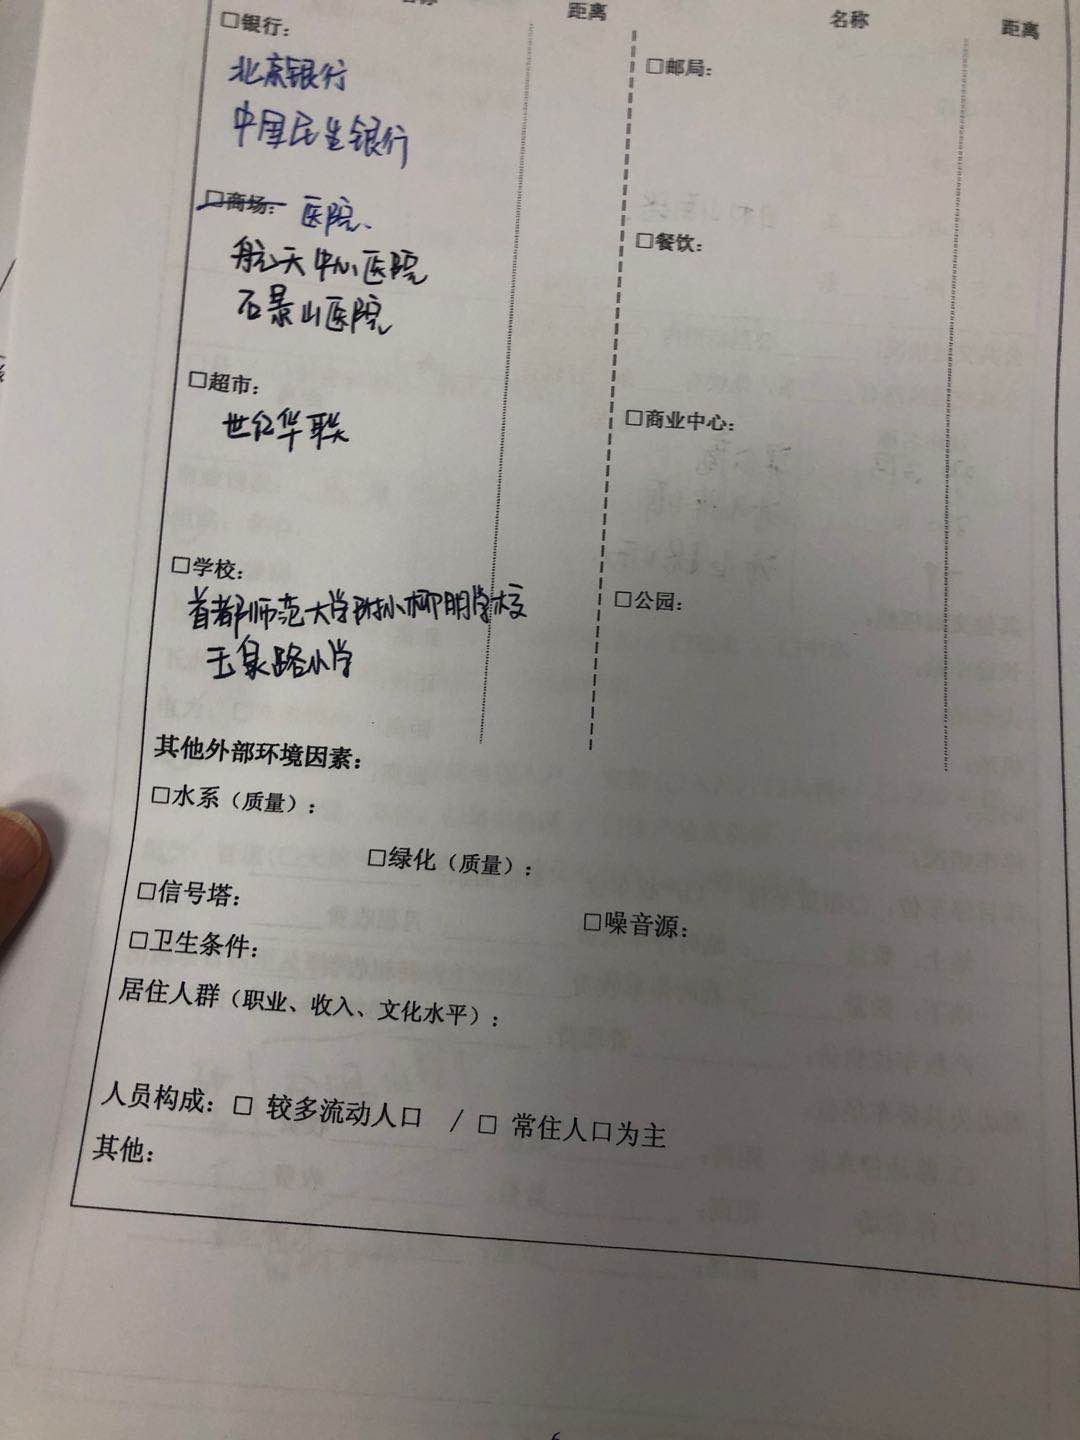 名称 距离 名称 距离
□银行：
北京银行
中国民生银行
□商场： 医院、
航天中心医院
石景山医院
□超市：
世纪华联
□学校：
首都师范大学附小柳明学校
玉泉路小学
□邮局：
□餐饮：
□商业中心：
□公园：
其他外部环境因素：
□水系（质量）：
□绿化（质量）：
□信号塔：
□噪音源：
□卫生条件：
居住人群（职业、收入、文化水平）：
人员构成：□ 较多流动人口 / □ 常住人口为主
其他：
6